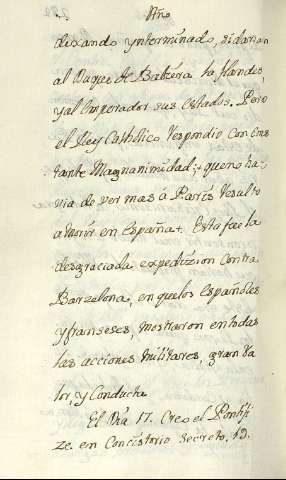 Año
dexando ynterminado, si darian
al Duque de Babiera la flandes,
y al Emperador sus estados. Pero
el Rey Catholico respondio con cons
tante Magnanimidad; que no ha
via de ver mas á Paris resulto
a morir en España. Esta fue la
desgraciada expedizion contra
Barzelona, en que los españoles
y franseses, mostraron en todas
las acciones militares, gran va
lor, y Conducta
El Dia 17. Creo el Pontifi
ze. en Concistorio secreto. 19.